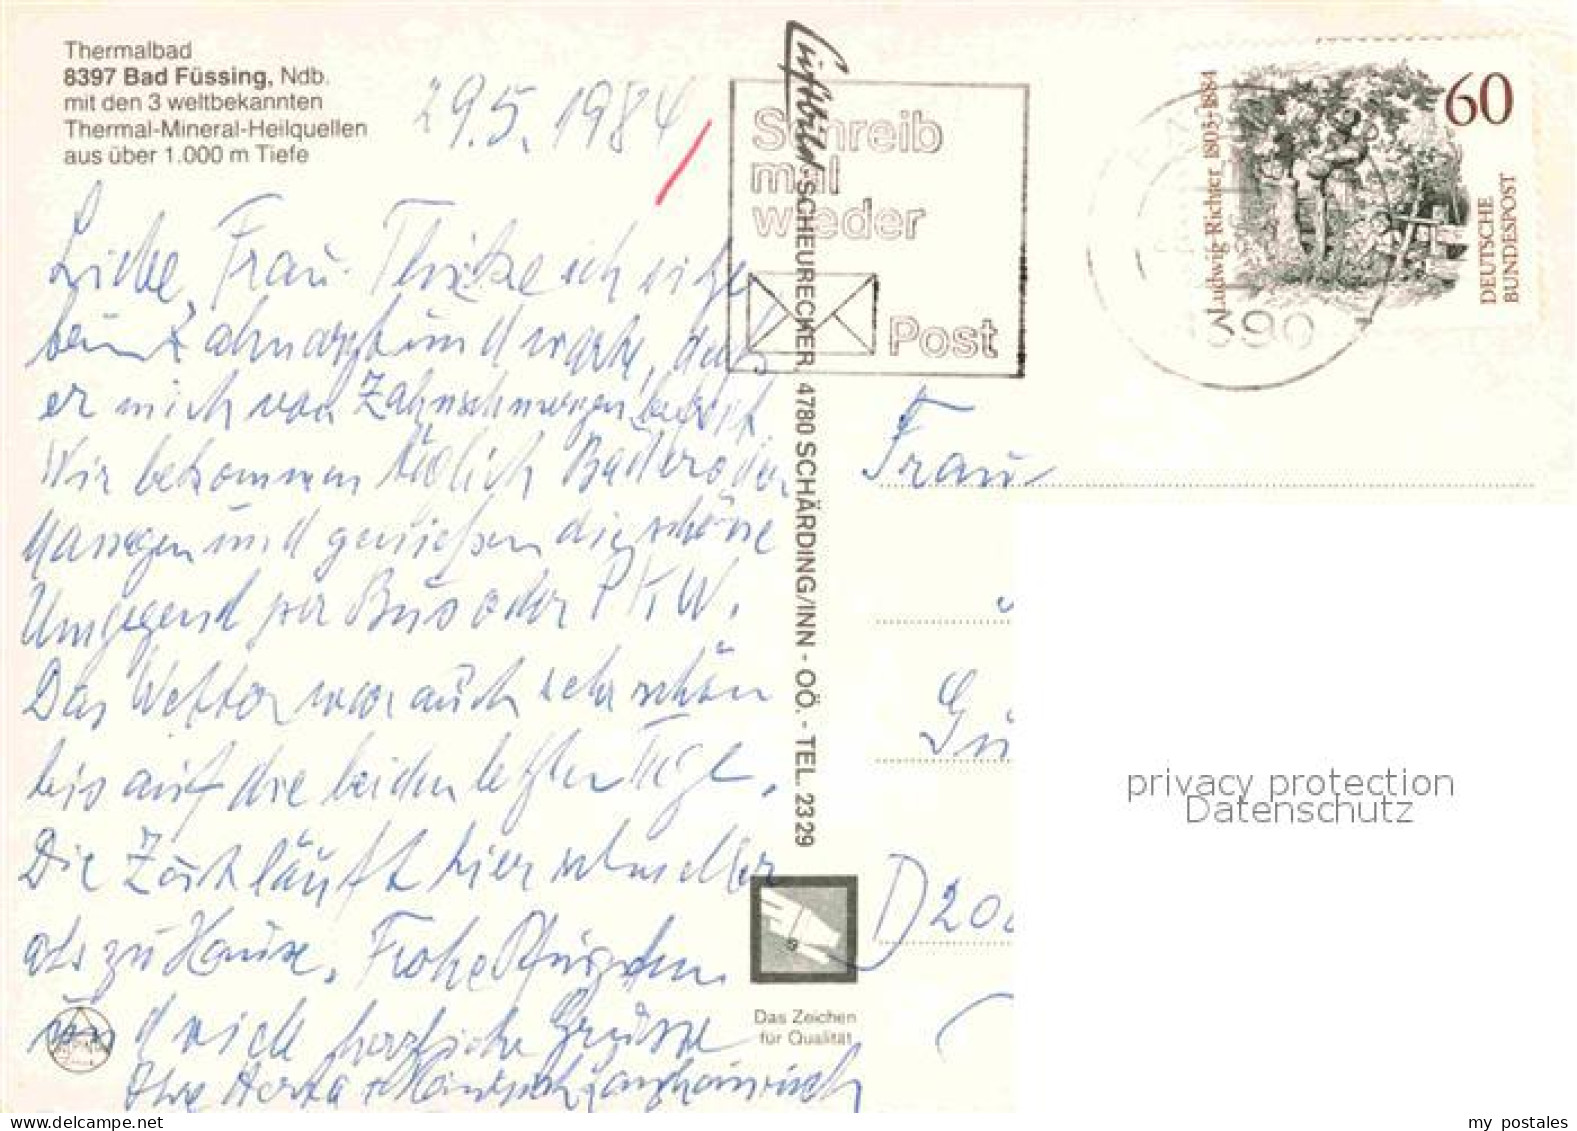 Thermalbad
8397 Bad Füssing, Ndb.
mit den 3 weltbekannten
Thermal-Mineral-Heilquellen
aus über 1.000 m Tiefe
29.5.1984
Liebe Frau ich sitze
beim Zahnarzt und warte, daß
er mich von Zahnschmerzen befreit.
Wir bekommen täglich Bäder oder
Massagen und genießen die schöne
Umgegend per Bus oder PKW.
Das Wetter war auch sehr schön
bis auf die beiden letzten Tage.
Die Zeit läuft hier schneller
als zu Hause. Frohe Pfingsten
und viele herzliche Grüsse
Ihre Herta +
Luftbild SCHEURECKER, 4780 SCHÄRDING/INN - OÖ. - TEL. 2329
Das Zeichen
für Qualität
Schreib
mal
wieder
Post
Ludwig Richter 1803-1884
60
DEUTSCHE
BUNDESPOST
8390
Frau
D 20
privacy protection
Datenschutz
my postales